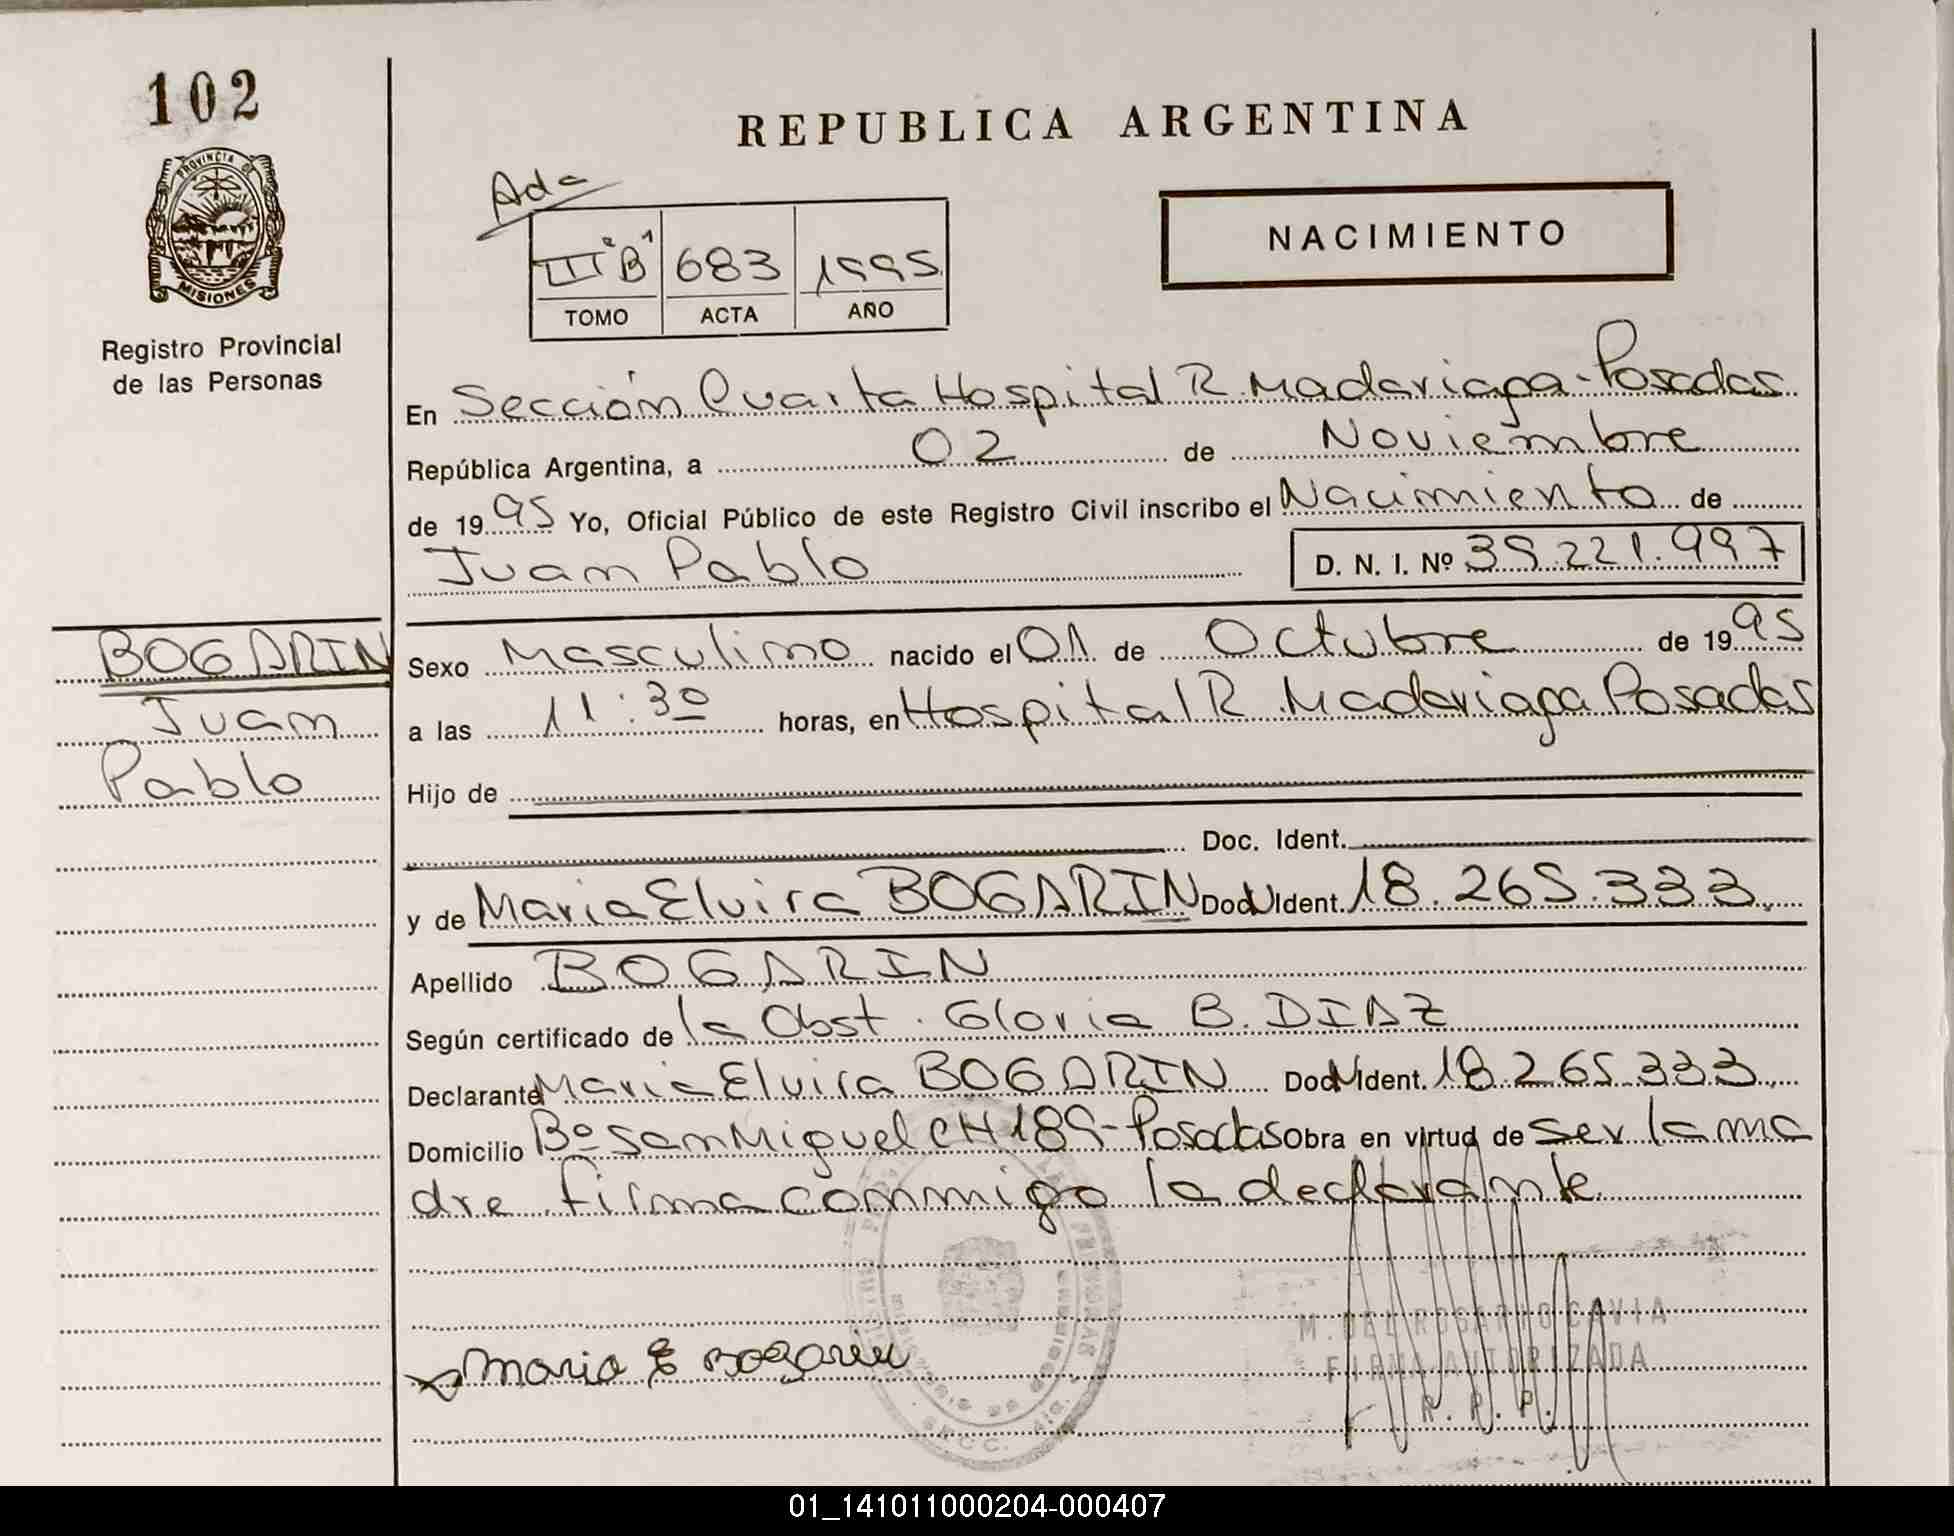 102
REPUBLICA ARGENTINA
PROVINCIA DE
MISIONES
Registro Provincial
de las Personas
Ada
III "B" 683 1995
TOMO ACTA AÑO
NACIMIENTO
En Sección Cuarta Hospital R. Madariaga - Posadas
República Argentina, a 02 de Noviembre
de 1995 Yo, Oficial Público de este Registro Civil inscribo el Nacimiento de
Juan Pablo D. N. I. Nº 39.221.997
BOGARIN
Juan
Pablo
Sexo Masculino nacido el 01 de Octubre de 1995
a las 11:30 horas, en Hospital R. Madariaga Posadas
Hijo de
Doc. Ident.
y de Maria Elvira BOGARIN Doc. Ident. 18.265.333
Apellido BOGARIN
Según certificado de la Obst. Gloria B. DIAZ
Declarante Maria Elvira BOGARIN Doc. Ident. 18.265.333
Domicilio Bº San Miguel CH 189 - Posadas Obra en virtud de ser la ma
dre. Firma conmigo la declarante
Maria E Bogarin
M. DEL ROSARIO GAVIA
FIRMA AUTORIZADA
R. P. P.
01_141011000204-000407